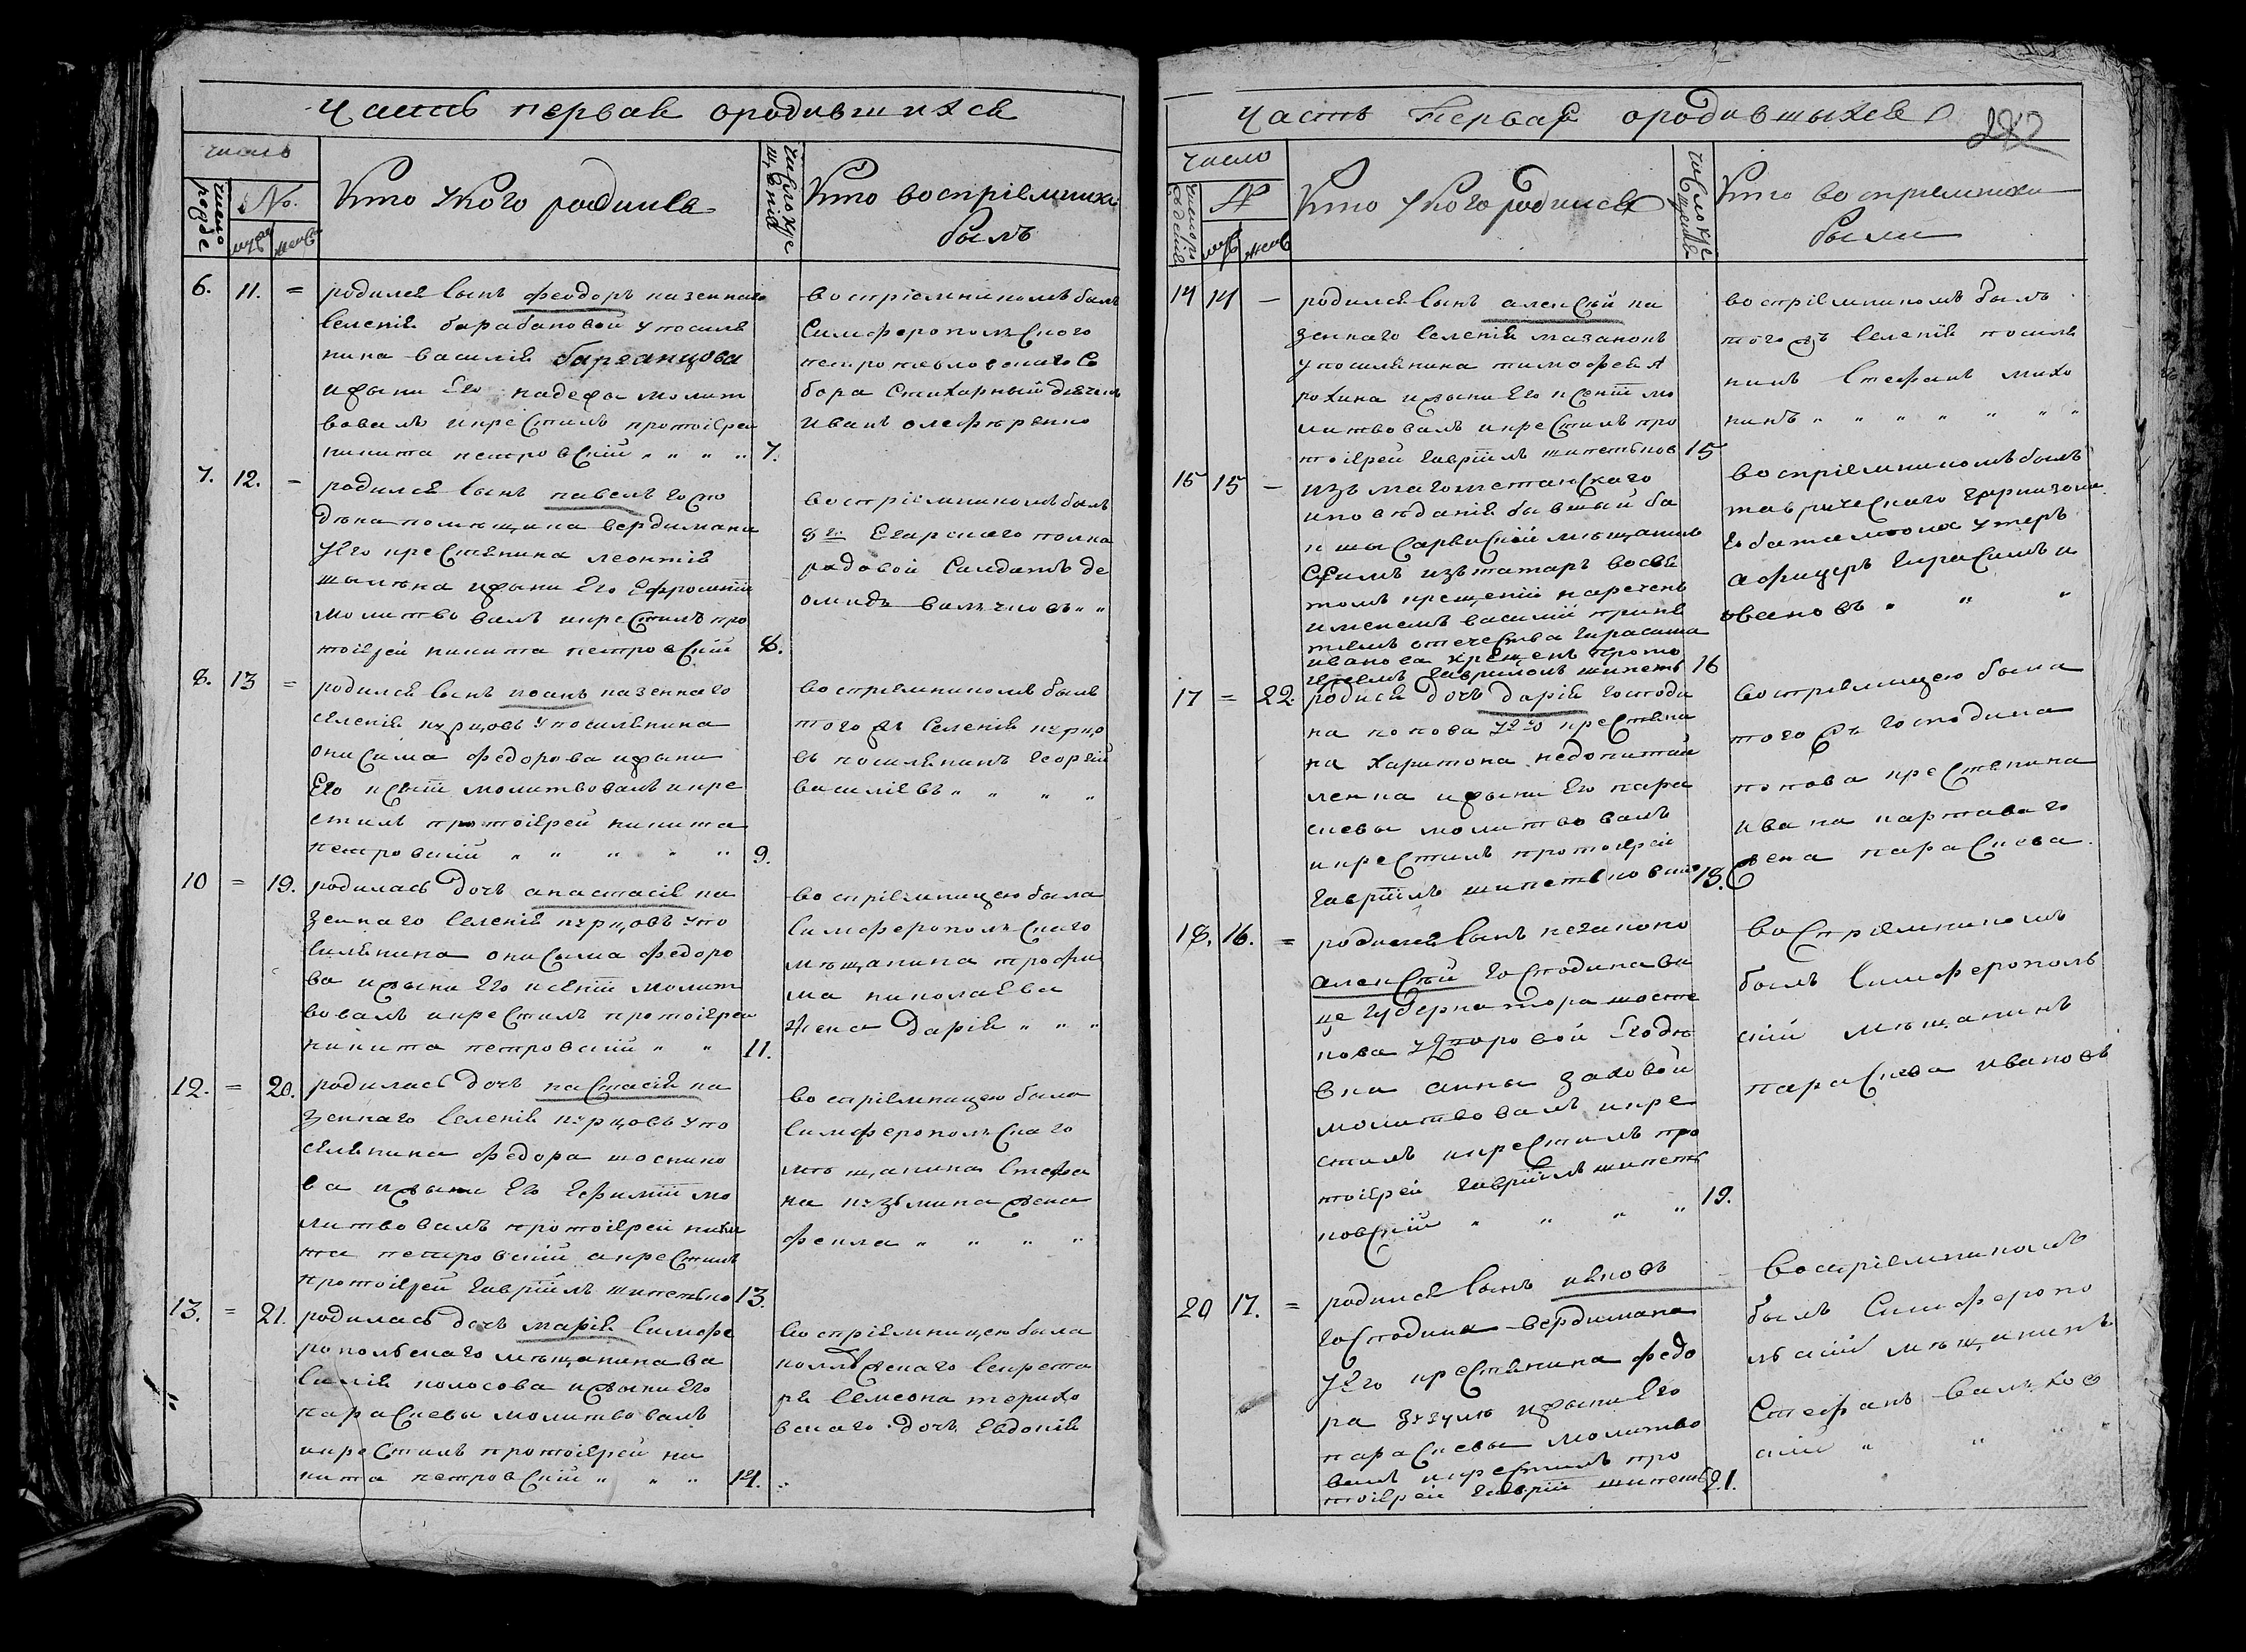 Часть первая ородившихся
число
число рожде
No.
муж женс
Кто укого родился
число креще нiя
Кто воспрiемники
былъ
6. 11. = родился сынъ феодоръ казеннаго
селенiя барабановой упосиля
нина василiя барганцова
ижены его надежы молит
вовалъ икрестилъ протоiерей
никита петровскiй „ „ „ „ 7.
воспрiемникомъ былъ
Симферопольского
петропавловскаго Со
бора стихарный дьячекъ
иванъ олефиренко
7. 12. - родился сынъ павелъ госпо
дина помѣщика вердимана
уего крестянина леонтiя
ижены его Ефросинiи
молитвовалъ икрестилъ про
тоiерей никита петровскiй 8.
воспрiемникомъ былъ
8го Егарскаго полка
рядовой Салдатъ де
омидъ
8. 13 = родился сынъ иоанъ казеннаго
селенiя курцовъ упосилянина
онисима федорова ижены
Его ксенiи молитвовалъ икре
стилъ протоiерей никита
петровскiй „ „ „ „ „ 9.
воспрiемникомъ былъ
того жъ селенiя курцо
въ посилянинъ георгiй
василiевъ „ „ „ „
10 = 19. родиласъ дочъ анастасiя ка
зеннаго селенiя курцовъ упо
силянина онисима федоро
ва ижены Его ксенiи молит
вовалъ икрестилъ протоiерей
никита петровскiй „ „ 11.
воспрiемницею была
симферопольскаго
мѣщанина трофи
ма николаева
Жена Дарiя „ „ „
12. = 20. родиласъ дочъ настасiя ка
зеннаго селенiя курцовъ упо
силянина федора
ва ижены Его Ефимiи мо
литвовалъ протоiерей ники
та петровскiй акрестилъ
протоiерей гаврiилъ шипетько 13.
воспрiемницею была
симферопольскаго
мѣщанина Стефа
на кузьмина жена
фекла „ „ „ „
13. = 21. родиласъ дочъ марiя симфе
ропольскаго мѣщанина ва
силiя колосова ижены Его
параскевы молитвовалъ
икрестилъ протоiерей ни
кита петровскiй „ „ „ 14.
воспрiемницею была
коллѣжскаго секрета
ря семеона терихо
вскаго дочъ Евдокiя
Часть Первая ородившыхся
282
число
No
муж женс
Кто укого родился
число креще
Кто воспрiемники
были
14 14 - родился сынъ алексѣй ка
зеннаго селенiя мазанокъ
упосилянина тимофея
рохина ижены Его ксенiи мо
литвовалъ икрестилъ про
тоiерей гаврiилъ шипетьков 15
воспрiемникомъ былъ
тогожъ селенiя посиля
нинъ Стефанъ михо
нинъ „ „ „ „ „ „ „
15 15 - изъ магометанскаго
исповѣданiя бывшый ба
мѣщанинъ
изъ татаръ восвя
томъ крещенiи нареченъ
именемъ василiй приня
тiемъ отечества гирасима
иванова крещенъ прото
iереемъ гаврииломъ шипеть 16
воспрiемникомъ былъ
таврическаго гарнизона
го баталiона унтеръ
афицеръ гирасимъ и
вановъ „ „ „
17 = 22. родися дочь дарiя господи
на попова уего крестяни
на харитона недопитай
ленка ижены Его пара
скевы молитвовалъ
икрестилъ протоiерей
гаврiилъ шипетьковскiй 18.
воспрiемницею была
того жъ господина
попова крестянина
ивана картаваго
жена параскева
18. 16. = родился сынъ незаконо
алексѣй господина ви
це губернатора шосте
кова удворовой
вки анны
молитвовалъ икре
стилъ икрестилъ про
тоiерей гаврiилъ шипеть
ковскiй „ „ „ „ 19.
воспрiемникомъ
былъ Симферополь
скiй мѣщанинъ
параскева ивановъ
20 17. = родился сынъ ияковъ
господина вердимана
уего крестянина федо
ра зузулю ижены Его
параскевы молитво
валъ икрестилъ про
тоiерей гаврiи шипеть 21.
воспрiемникомъ
былъ Симферопо
льскiй мѣщанинъ
Стефанъ вальков
скiй „ „ „ „